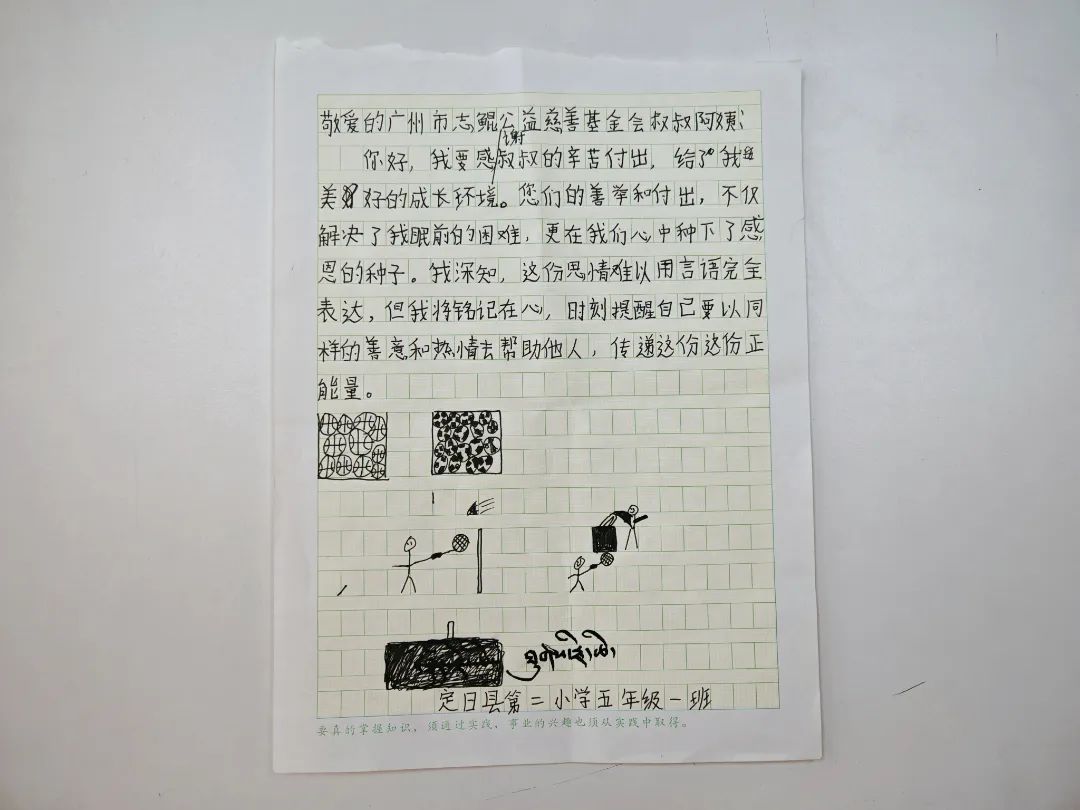 敬爱的广州市志鲲公益慈善基金会叔叔阿姨：
你好，我要感谢叔叔的辛苦付出，给了我
美好的成长环境。您们的善举和付出，不仅
解决了我眼前的困难，更在我们心中种下了感
恩的种子。我深知，这份恩情难以用言语完全
表达，但我将铭记在心，时刻提醒自己要以同
样的善意和热情去帮助他人，传递这份这份正
能量。
定日县第二小学五年级一班
要真的掌握知识，须通过实践，事业的兴趣也须从实践中取得。